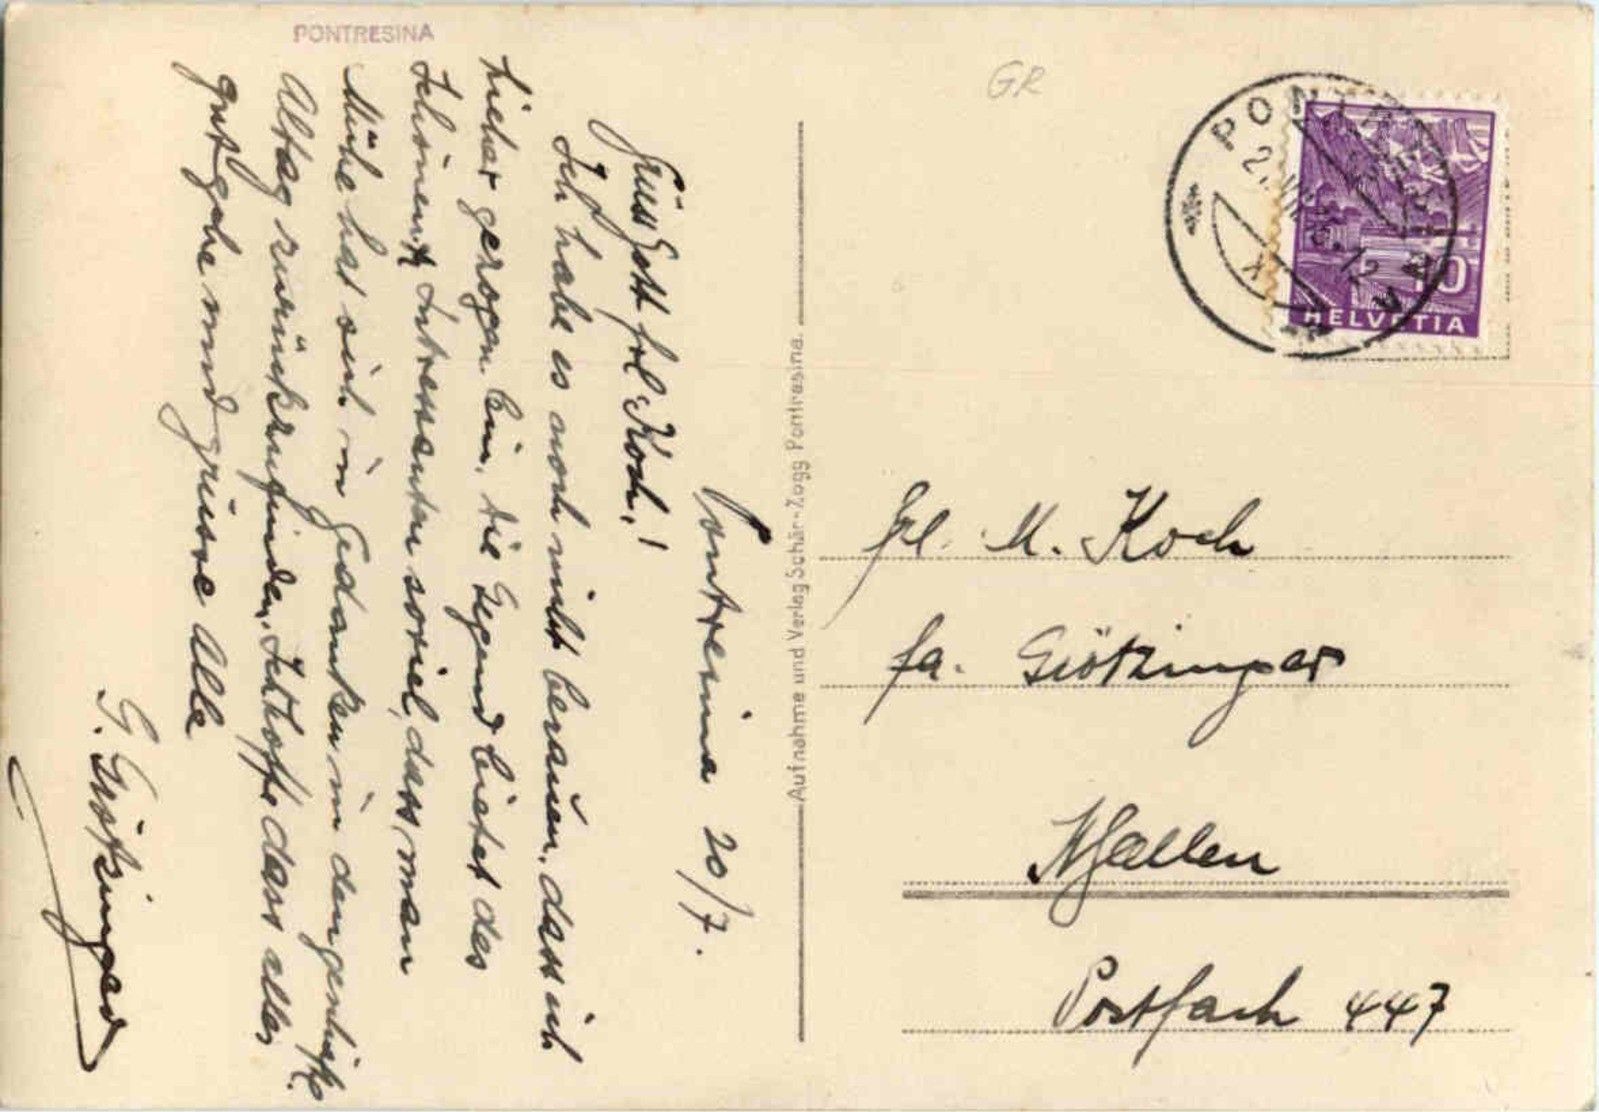 PONTRESINA
GR
Pontresina 20/7.
Grüss Gott frl. Koch!
Ich habe es noch nicht beraüen, dass ich
hieher gezogen bin, die Gegend bietet des
Schönen & Intressanten soviel, dass man
Mühe hat sich in Gedanken in den
Alltag zurückzufinden. Ich hoffe dass alles
gut gehe und grüsse Alle
G. Götzinger
Aufnahme und Verlag Schär-Zogg Pontresina.
HELVETIA
10
frl. M. Koch
fa. Götzinger
St. Gallen
Postfach 447